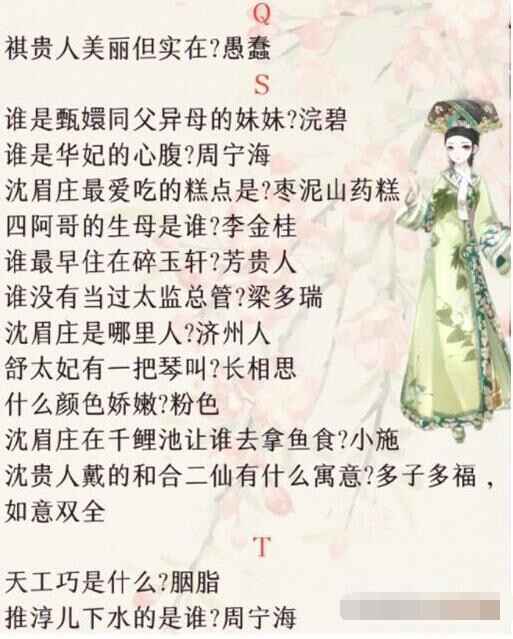 Q
祺贵人美丽但实在?愚蠢
S
谁是甄嬛同父异母的妹妹?浣碧
谁是华妃的心腹?周宁海
沈眉庄最爱吃的糕点是?枣泥山药糕
四阿哥的生母是谁?李金桂
谁最早住在碎玉轩?芳贵人
谁没有当过太监总管?梁多瑞
沈眉庄是哪里人?济州人
舒太妃有一把琴叫?长相思
什么颜色娇嫩?粉色
沈眉庄在千鲤池让谁去拿鱼食?小施
沈贵人戴的和合二仙有什么寓意?多子多福，
如意双全
T
天工巧是什么?胭脂
推淳儿下水的是谁?周宁海